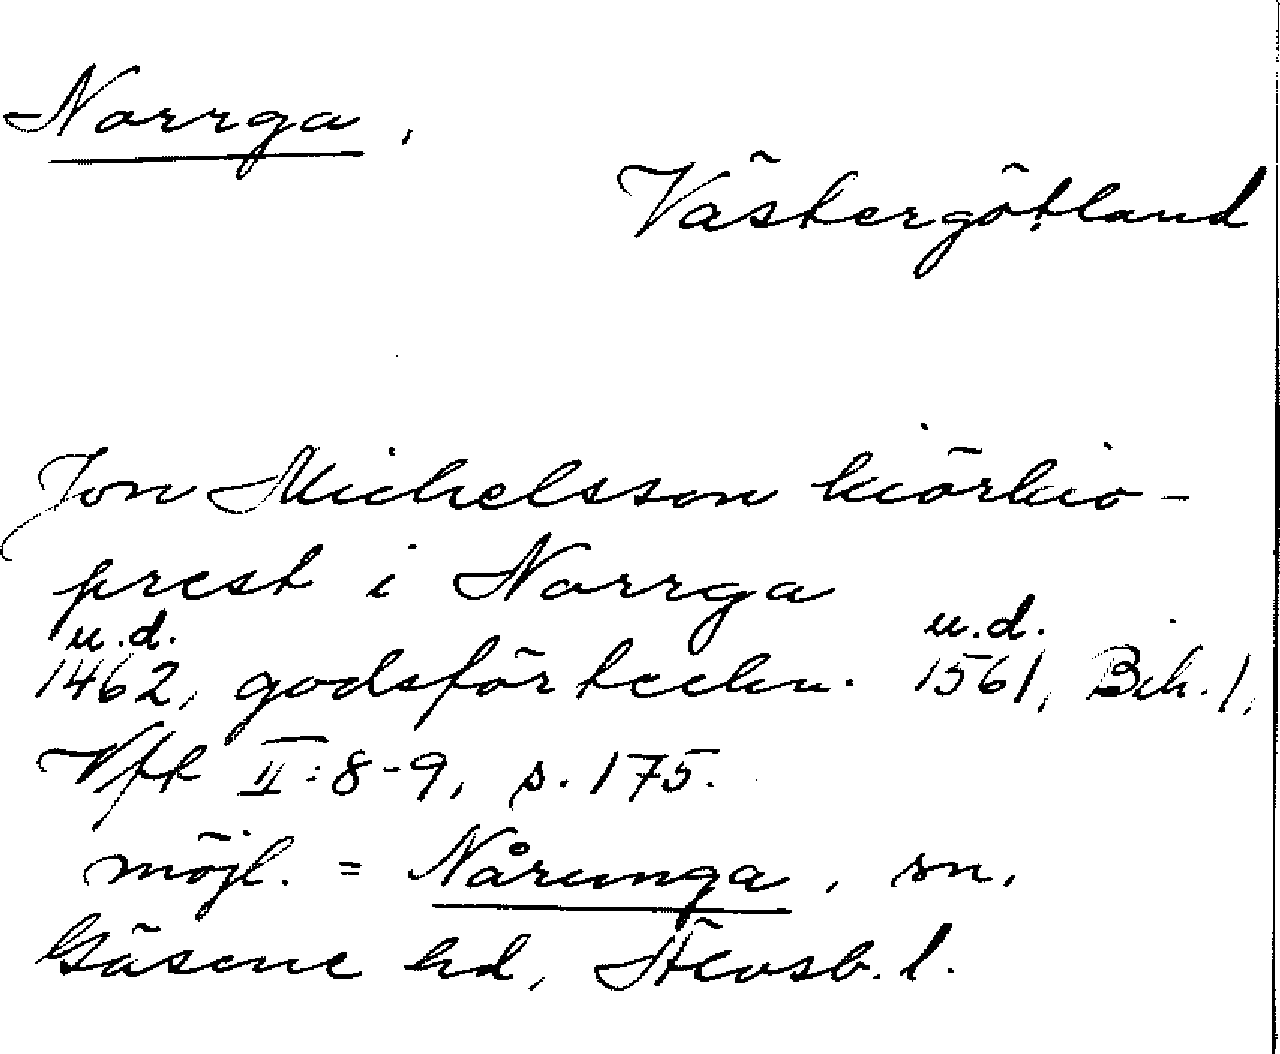 Norrga,
Västergötland
Jon Michelsson kiörkio-
prest i Norrga
u.d. u.d.
1462, godsförteckn. 1561, Bih. 1,
Vft II:8-9, s. 175.
möjl. = Nårunga, sn,
Gäsene hd, Älvsb. l.